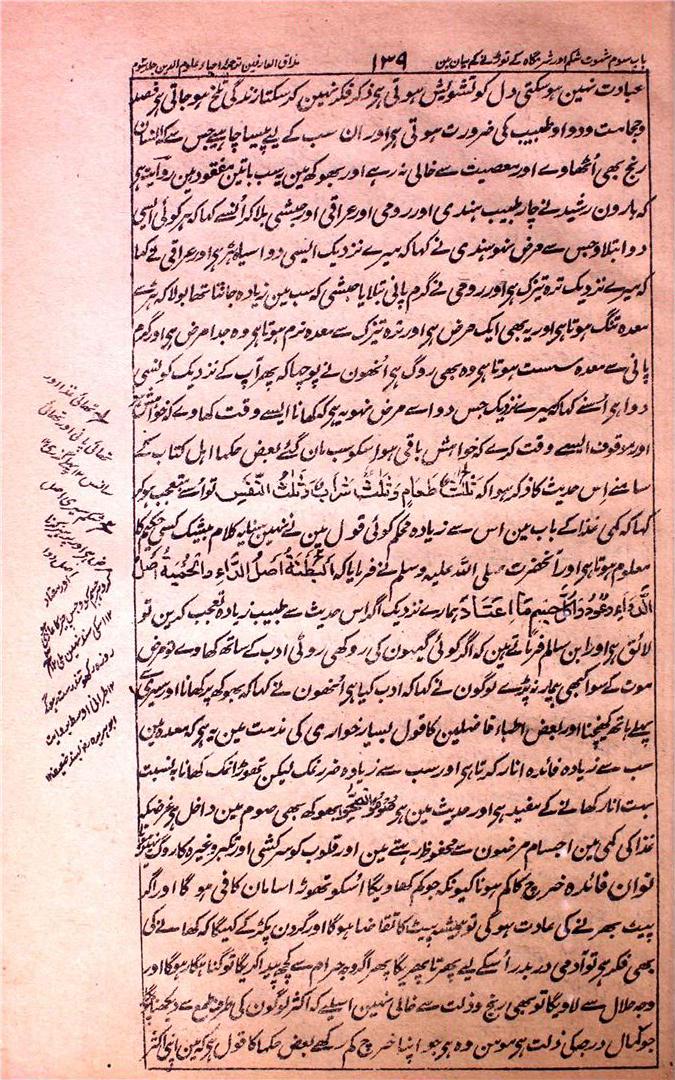 باب سوم شہوت شکم اور شرمگاہ کے توڑنے کے بیان مین
۱۳۹
مذاق العارفین ترجمہ احیاء علوم الدین جلد سوم
عبادت نہین ہو سکتی دل کو تشویش ہوتی ہی ذکر فکر نہین کر سکتا زندگی تلخ ہو جاتی ہی فصد
و حجامت و دوا و طبیب کی ضرورت ہوتی ہی اور ان سب کے لیے پیسا چاہیے جس سے کہ انسان
رنج بھی اٹھاوے اور معصیت سے خالی نہ رہے اور بھوکھ مین یہ سب باتین مفقود ہین روایت ہی
کہ ہارون رشید نے چار طبیب ہندی اور رومی اور عراقی اور حبشی بلا کر اُنسے کہا کہ ہر کوئی ایسی
دوا بتلاؤ جس سے مرض نہو ہندی نے کہا کہ میرے نزدیک ایسی دوا سیاہ ہڑ ہی اور عراقی نے کہا
کہ میرے نزدیک ترہ تیزک ہی اور رومی نے گرم پانی بتلایا حبشی کہ سب مین زیادہ جانتا تھا بولا کہ ہڑ سے
معدہ تنگ ہوتا ہی اور یہ بھی ایک مرض ہی اور ترہ تیزک سے معدہ نرم ہوتا ہی وہ جدا مرض ہی اور گرم
پانی سے معدہ سست ہوتا ہی وہ بھی روگ ہی اُنھون نے پوچھا کہ پھر آپ کے نزدیک کونسی
دوا ہی اُسنے کہا کہ میرے نزدیک جس دوا سے مرض نہو یہ ہی کہ کھانا ایسے وقت کھاوے کہ خواہش ہو
اور موقوف ایسے وقت کرے کہ خواہش باقی ہو اسکو سب مان گئے بعض حکما اہل کتاب کے
سامنے اس حدیث کا ذکر ہوا کہ ثُلُثٌ طَعَامٌ وَثُلُثٌ شَرَابٌ وَثُلُثٌ النَّفَسِ تو اُسے تعجب ہو کر
کہا کہ کمی غذا کے باب مین اس سے زیادہ محکم کوئی قول مین نے نہین سنا یہ کلام بیشک کسی حکیم کا
معلوم ہوتا ہی اور آنحضرت صلی اللہ علیہ وسلم نے فرمایا کہ اَلْبِطْنَةُ اَصْلُ الدَّاءِ وَالْحِمْيَةُ اَصْلُ
الدَّوَاءِ وَعَوِّدُوا كُلَّ جِسْمٍ مَا اعْتَادَ ہمارے نزدیک اگر اس حدیث سے طبیب زیادہ تعجب کرین تو
لائق ہی اور ابن سالم فرماتے ہین کہ اگر کوئی گیہون کی روکھی روٹی ادب کے ساتھ کھاوے تو مرض
موت کے سوا کبھی بیمار نہ پڑے لوگون نے کہا کہ ادب کیا ہی اُنھون نے کہا کہ بھوکھ پر کھانا اور سیری سے
پہلے ہاتھ کھینچنا اور بعض اطباء فاضلین کا قول بسیار خواری کی مذمت مین یہ ہی کہ معدہ مین
سب سے زیادہ فائدہ انار کرتا ہی اور سب سے زیادہ ضرر نمک لیکن تھوڑا نمک کھانا بہ نسبت
بہت انار کھانے کے مفید ہی اور حدیث مین ہی صُوْمُوْا تَصِحُّوْا بھوکھ بھی صوم مین داخل ہی غرضکہ
غذا کی کمی مین اجسام مرضون سے محفوظ رہتے ہین اور قلوب کو سرکشی اور تکبر وغیرہ کا روگ نہین ہوتا
نوان فائدہ خرچ کا کم ہونا کیونکہ جو کم کھاویگا اُسکو تھوڑا سامان کافی ہو گا اور اگر
پیٹ بھرنے کی عادت ہو گی تو ہمیشہ پیٹ کا تقاضا ہو گا اور گردن پکڑ کے کہیگا کہ کھانے کی
بھی فکر ہی تو آدمی در بدر اُسکے لیے پھرتا پھریگا پھر اگر وجہ حرام سے کچھ پیدا کریگا تو گناہگار ہوگا اور
وجہ حلال سے لاویگا تو بھی رنج و ذلت سے خالی نہین اسلیے کہ اکثر لوگون کی طرف طمع سے دیکھنا پڑیگا
جو کمال درجہ کی ذلت ہی مومن وہ ہی جو اپنا خرچ کم رکھے بعض حکما کا قول ہی کہ مین اپنی اکثر
تہائی غذا اور
تہائی پانی اور تہائی
سانس